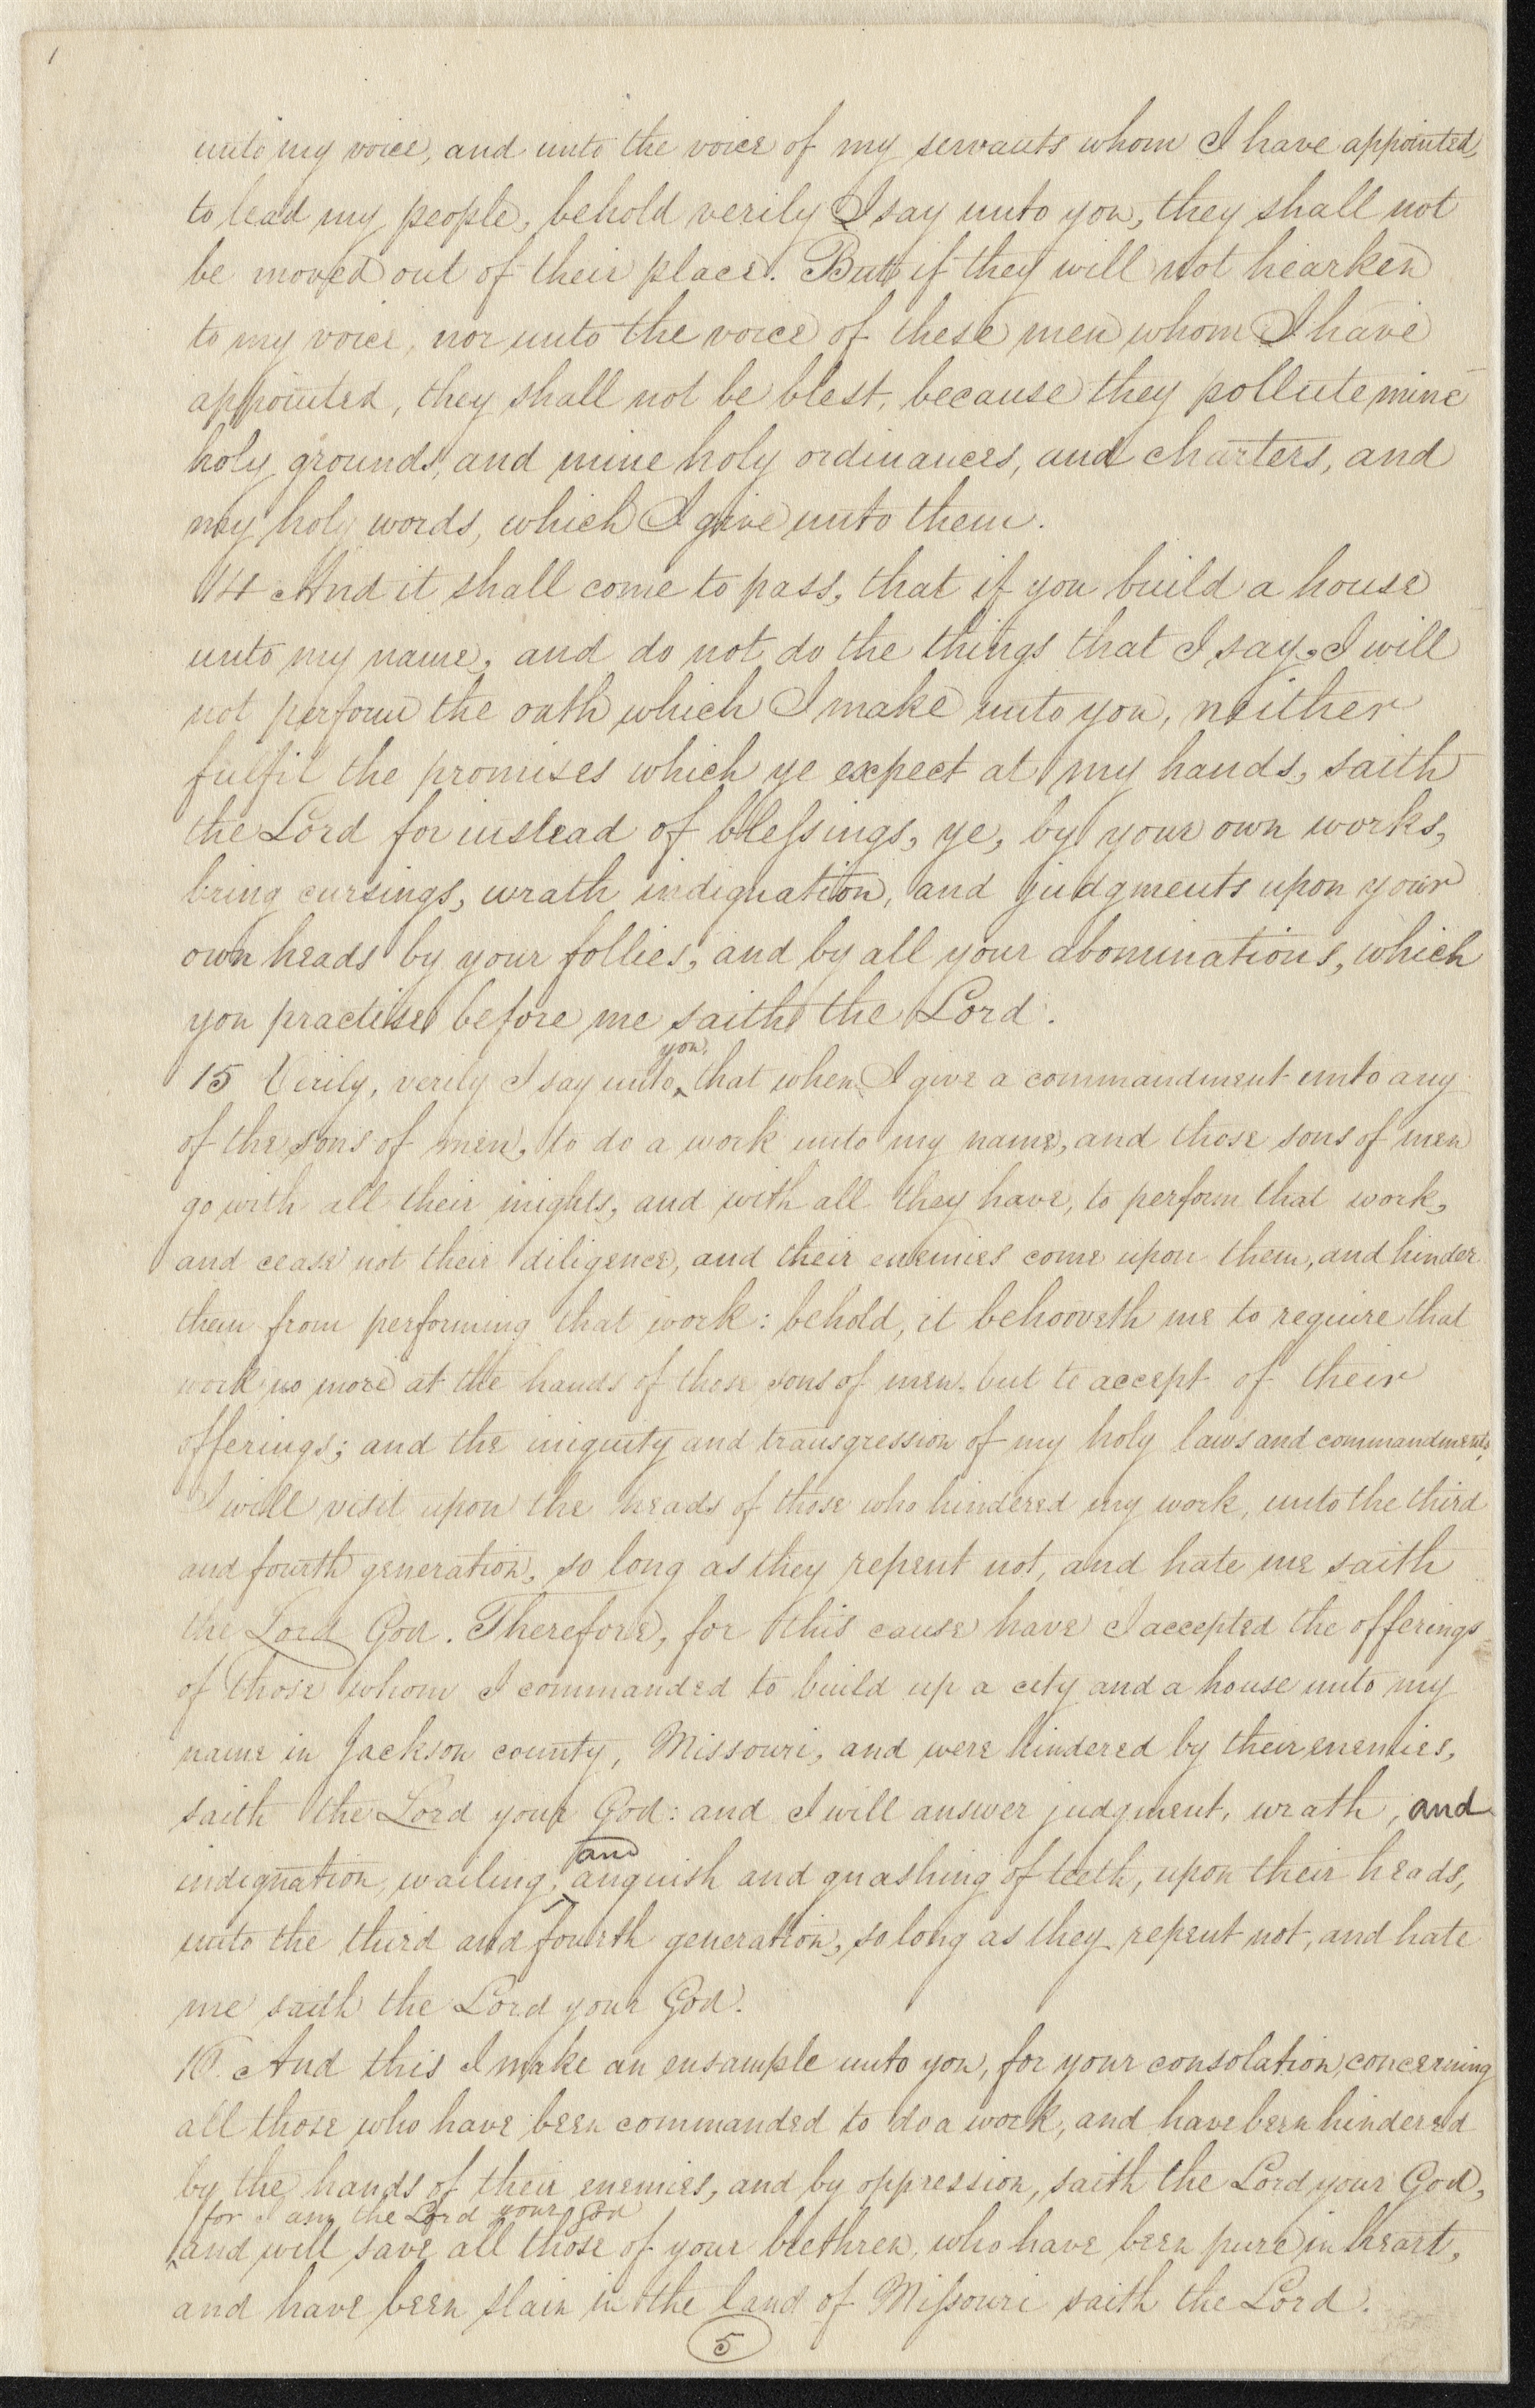 unto my voice, and unto the voice of my servants whom I have appointed,
to lead my people, behold verily I say unto you, they shall not
be moved out of their place. But if they will not hearken
to my voice, nor unto the voice of these men whom I have
appointed, they shall not be blest, because they pollute mine
holy grounds, and mine holy ordinances, and charters, and
my holy words, which I give unto them.
14 And it shall come to pass, that if you build a house
unto my name, and do not do the things that I say, I will
not perform the oath which I make unto you, neither
fulfil the promises which ye expect at my hands, saith
the Lord for instead of blessings, ye, by your own works,
bring cursings, wrath indignation, and judgments upon your
own heads by your follies, and by all your abominations, which
you practise before me saith the Lord.
you,
15 Verily, verily I say unto ‸ that when I give a commandment unto any
of the sons of men, to do a work unto my name, and those sons of men
go with all their mights, and with all they have, to perform that work,
and cease not their diligence, and their enemies come upon them, and hinder
them from performing that work: behold, it behooveth me to require that
work no more at the hands of those sons of men, but to accept of their
offerings; and the iniquity and transgression of my holy laws and commandments,
I will visit upon the heads of those who hindered my work, unto the third
and fourth generation, so long as they repent not, and hate me saith
the Lord God. Therefore, for this cause have I accepted the offerings
of those whom I commanded to build up a city and a house unto my
name in Jackson county, Missouri, and were hindered by their enemies,
saith the Lord your God: and I will answer judgment, wrath, and
and
indignation, wailing, ‸ anguish and gnashing of teeth, upon their heads,
unto the third and fourth generation, so long as they repent not, and hate
me saith the Lord your God.
16. And this I make an ensample unto you, for your consolation, concerning
all those who have been commanded to do a work, and have been hindered
by the hands of their enemies, and by oppression, saith the Lord your God,
for I am the Lord your God
‸ and will save all those of your brethren, who have been pure in heart,
and have been slain in the land of Missouri saith the Lord.
5